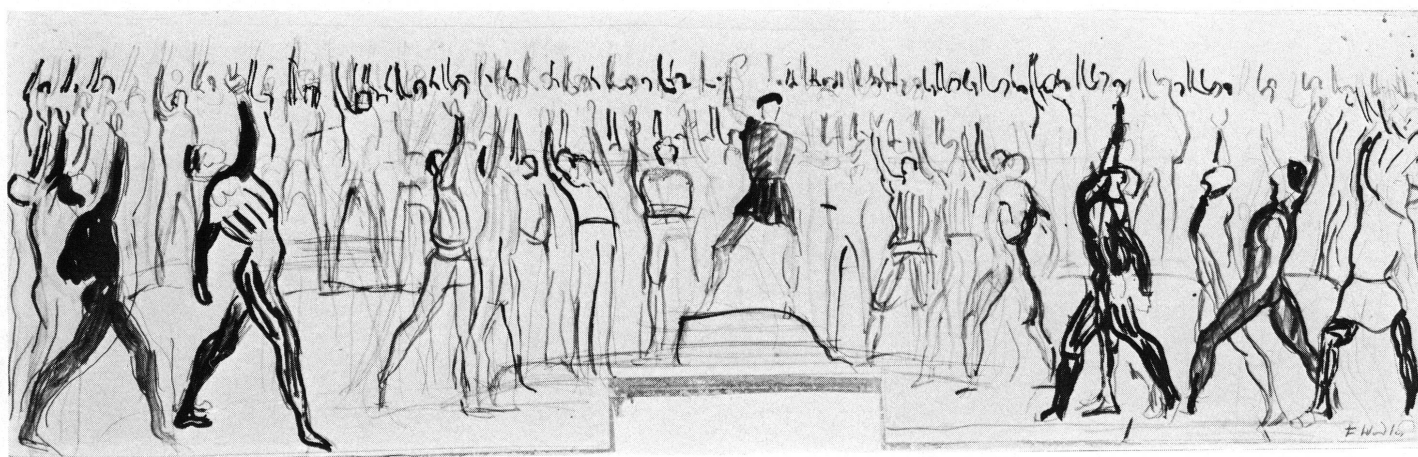 F Hodler